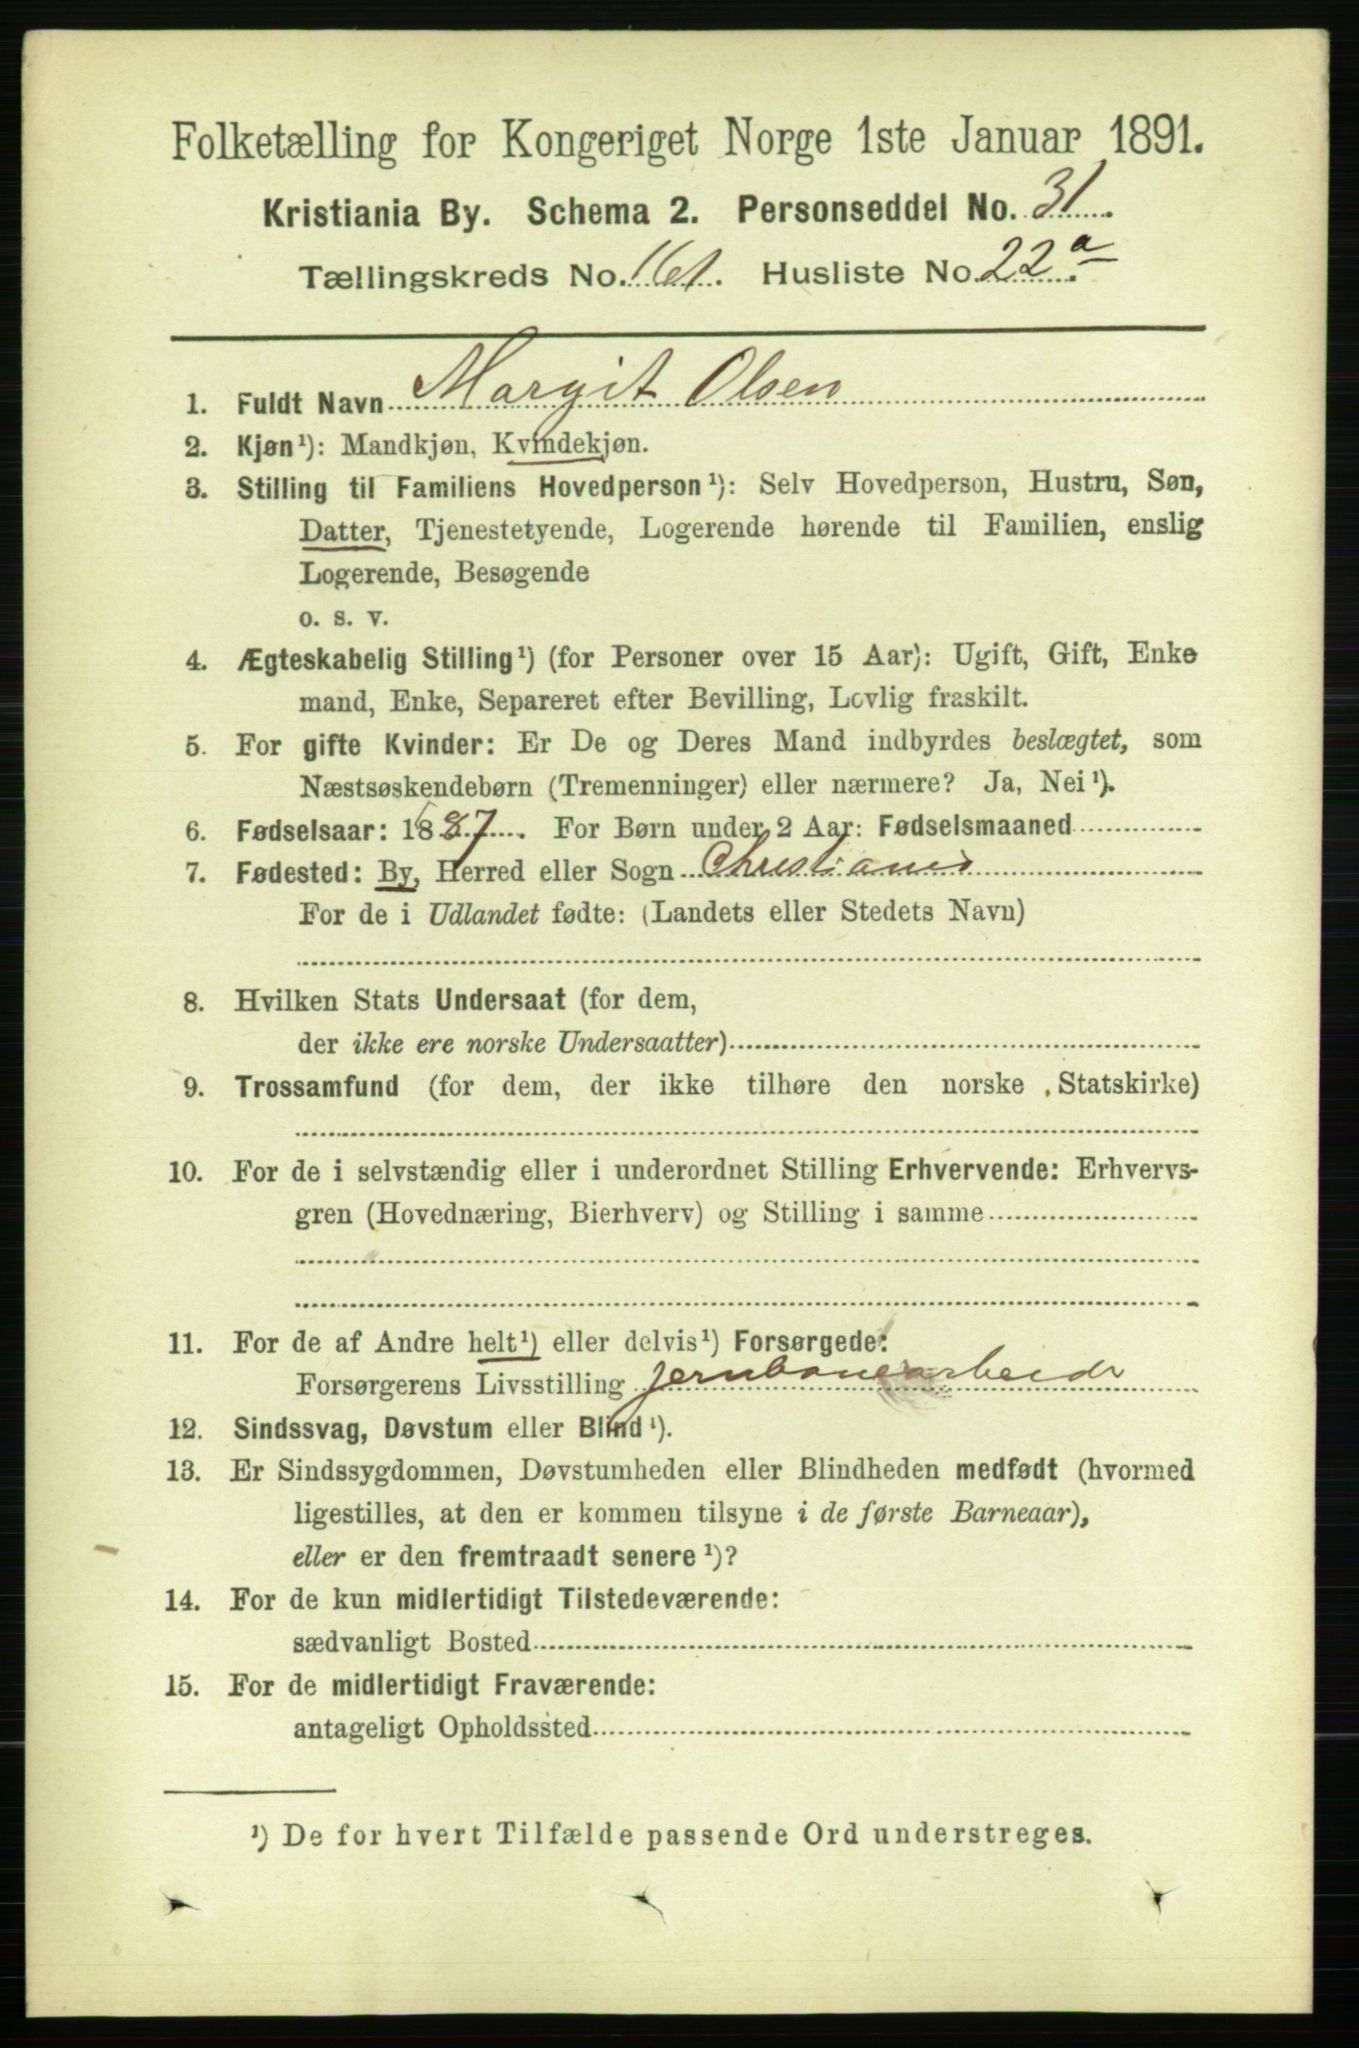 Folketælling for Kongeriget Norge 1ste Januar 1891.
Kristiania By. Schema 2. Personseddel No. 31
Tællingskreds No. 161. Husliste No. 22a
1. Fuldt Navn Margit Olsen
2. Kjøn¹): Mandkjøn, Kvindekjøn.
3. Stilling til Familiens Hovedperson¹): Selv Hovedperson, Hustru, Søn,
Datter, Tjenestetyende, Logerende hørende til Familien, enslig
Logerende, Besøgende
o. s. v.
4. Ægteskabelig Stilling¹) (for Personer over 15 Aar): Ugift, Gift, Enke
mand, Enke, Separeret efter Bevilling, Lovlig fraskilt.
5. For gifte Kvinder: Er De og Deres Mand indbyrdes beslægtet, som
Næstsøskendebørn (Tremenninger) eller nærmere? Ja, Nei¹).
6. Fødselsaar: 1887. For Børn under 2 Aar: Fødselsmaaned
7. Fødested: By, Herred eller Sogn Christiania
For de i Udlandet fødte: (Landets eller Stedets Navn)
8. Hvilken Stats Undersaat (for dem,
der ikke ere norske Undersaatter)
9. Trossamfund (for dem, der ikke tilhøre den norske Statskirke)
10. For de i selvstændig eller i underordnet Stilling Erhvervende: Erhvervs-
gren (Hovednæring, Bierhverv) og Stilling i samme
11. For de af Andre helt¹) eller delvis¹) Forsørgede:
Forsørgerens Livsstilling jernbanearbeide
12. Sindssvag, Døvstum eller Blind¹).
13. Er Sindssygdommen, Døvstumheden eller Blindheden medfødt (hvormed
ligestilles, at den er kommen tilsyne i de første Barneaar),
eller er den fremtraadt senere¹)?
14. For de kun midlertidigt Tilstedeværende:
sædvanligt Bosted
15. For de midlertidigt Fraværende:
antageligt Opholdssted
¹) De for hvert Tilfælde passende Ord understreges.